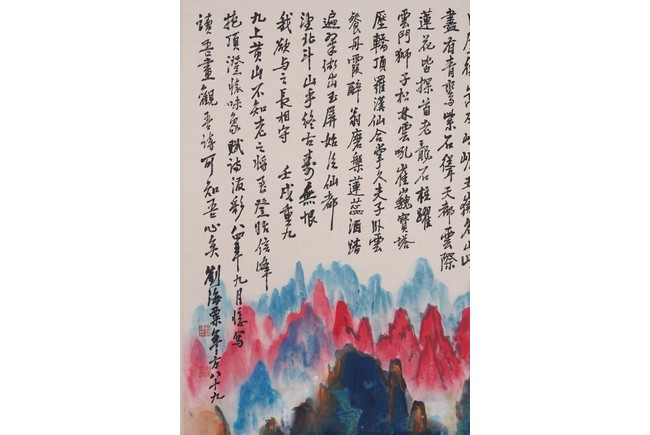 盡有青鸞紫石聳天都雲際
蓮花皆探首老龍石柱躍
雲門獅子松林雲吼崔巍寶塔
壓轎頂羅漢仙合掌久夫子臥雲
餐丹霞醉翁磨盤蓮蕊酒踏
遍翠微出玉屏始信仙都
望北斗山乎終古壽無恨
我欲与之長相守 壬戌重九
九上黄山不知老之將至登始信峰
絶頂澄懷味象賦詩潑彩八四年九月憶寫
讀吾畫觀吾詩可知吾心矣 劉海粟年方八十九